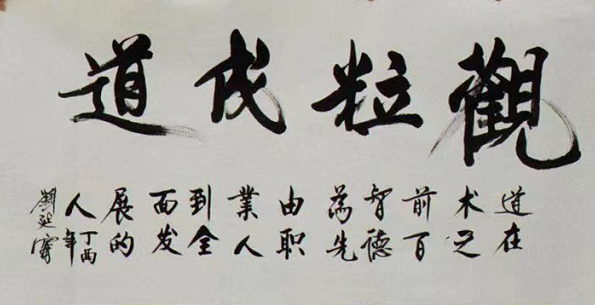 觀粒成道
道在
术之
前百
智德
為先
由职
業人
到全
面发
展的
人
丁酉
年
劉延